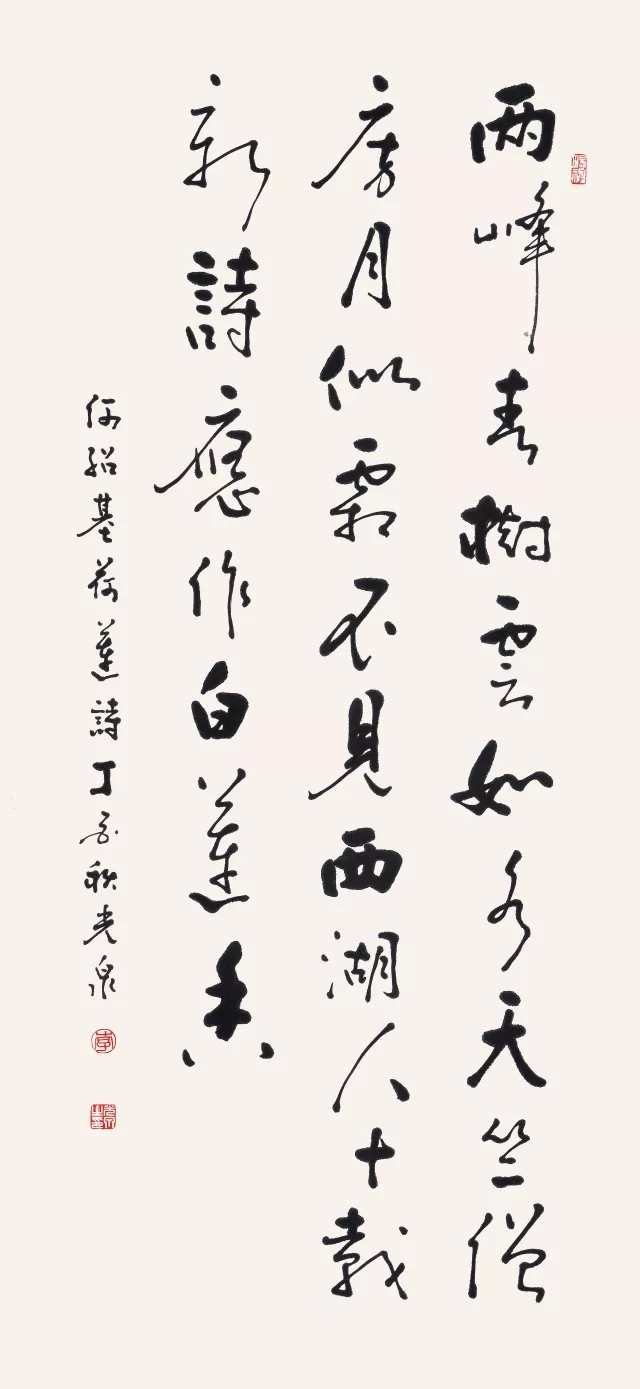 兩峰春樹雲如水天竺僧
房月似霜不見西湖人十載
新詩應作白蓮香
何紹基荷蓮詩丁秋光泉